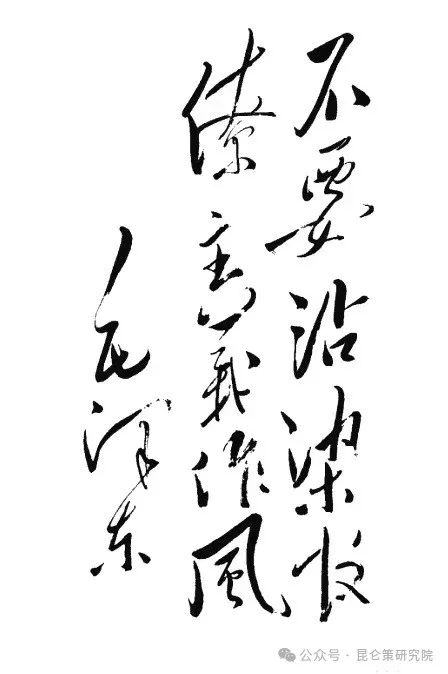 不要沾染官
僚主義作風
毛泽东
公众号 · 昆仑策研究院